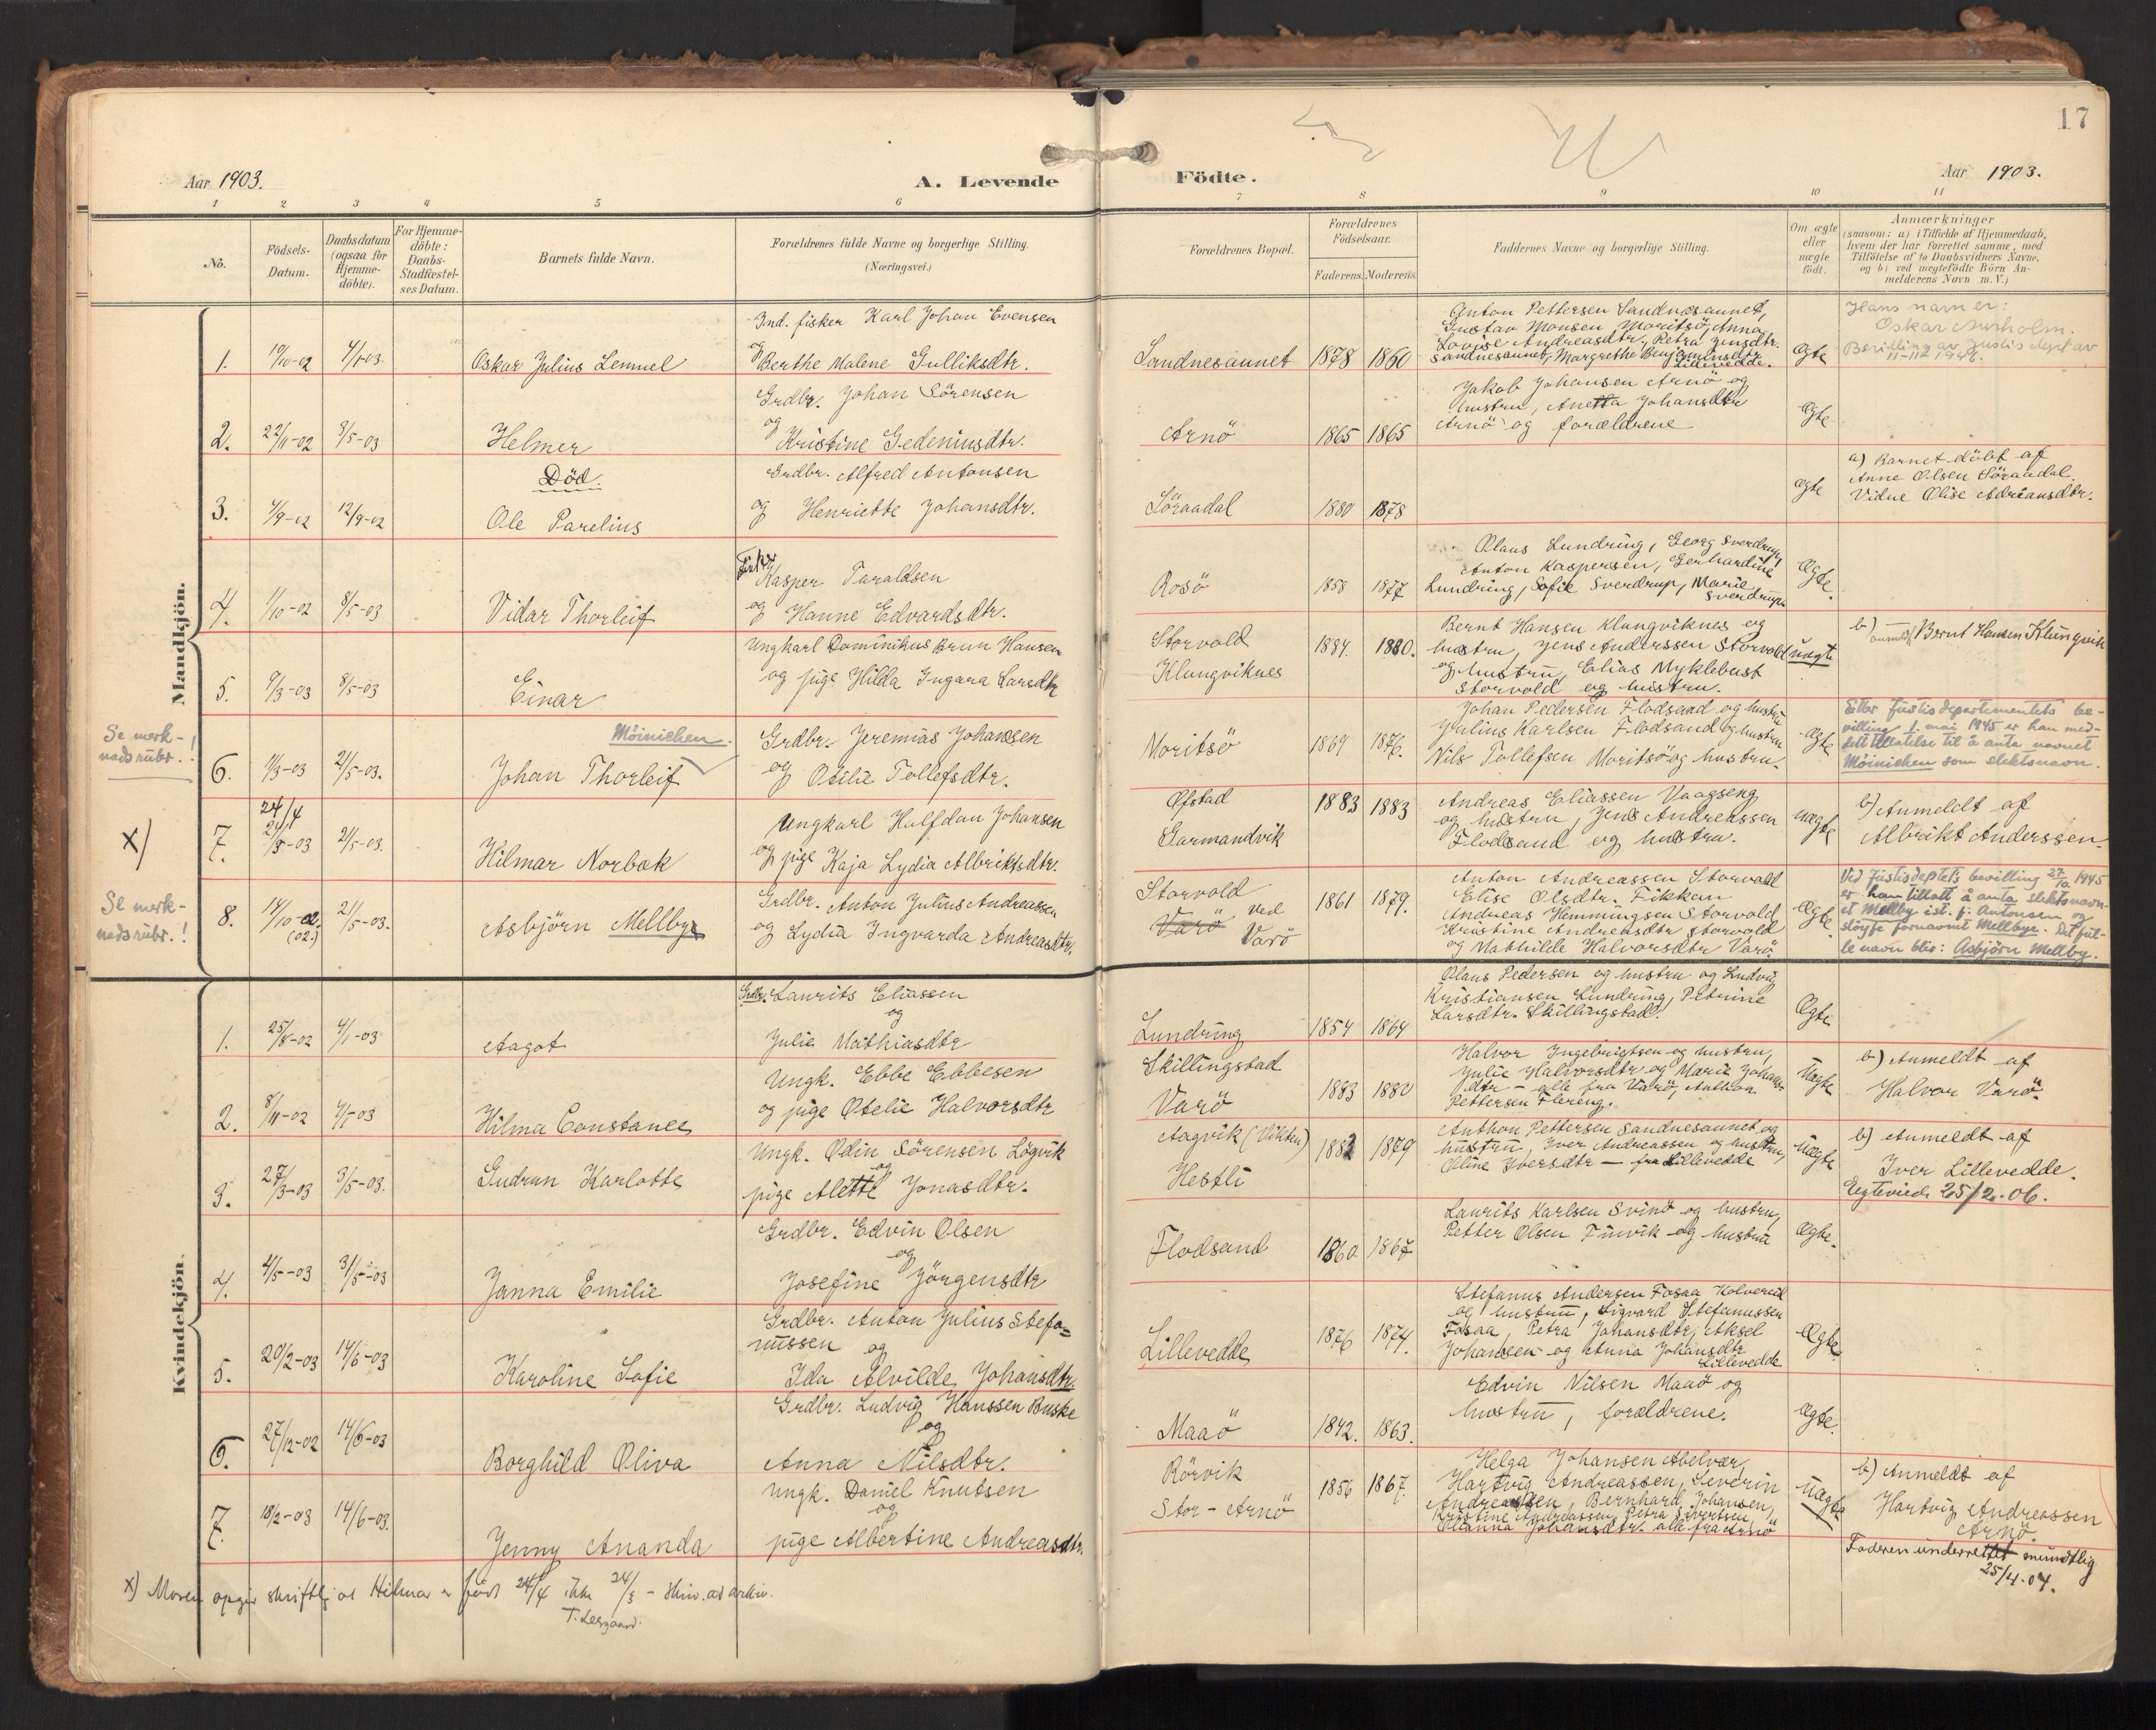 17
Aar 1903.
A. Levende Födte.
Aar 1903.
1 2 3 4 5 6 7 8 9 10 11
No.
Födsels-Datum.
Daabsdatum (ogsaa for Hjemme-döbte).
For Hjemme-döbte: Daabs-Stadfæstel-ses Datum.
Barnets fulde Navn.
Forældrenes fulde Navne og borgerlige Stilling.
(Næringsvei.)
Forældrenes Bopæl.
Forældrenes Födselsaar.
Faderens. Moderens.
Faddernes Navne og borgerlige Stilling.
Om ægte eller uægte födt.
Anmærkninger
(saasom: a) i Tilfælde af Hjemmedaab,
hvem der har forrettet samme, med
Tilföielse af to Daabsvidners Navne.
og b) ved uægtefödte Börn An-
melderens Navn m. V.)
Mandkjön.
1. 19/10-02 4/1-03 Oskar Julius Lemuel
Ind. fisker Karl Johan Evensen
og Berthe Malene Gulliksdtr.
Sandnesaunet 1878 1860
Anton Pettersen Sandnesaunet,
Gustav Monsen Moritsö, Anna
Lovise Andreasdtr, Petra Jensdtr.
Sandnesaunet, Margrethe Benjaminsdtr
Lillevedde.
Ægte
Hans navn er:
Oskar Aurholm.
Bevilling av Justisdept av
11-112 1946.
2. 22/11-02 3/5-03 Helmer
Grdbr. Johan Sörensen
og Kristine Gedeniusdtr.
Arnö 1865 1865
Jakob Johansen Arnö og
hustru, Anetta Johansdtr
Arnö og forældrene
Ægte
3. 4/9-02 12/9-02 Död.
Ole Parelius
Grdbr. Alfred Antonsen
og Henriette Johansdtr.
Söraadal 1880 1878
Ægte
a) Barnet döbt af
Anne Olsen Söraadal.
Vidne Elise Adriansdtr.
4. 1/10-02 8/5-03 Vidar Thorleif
Fisker
Kasper Taraldsen
og Hanne Edvardsdtr.
Rosö 1858 1877
Olaus Lundring, Georg Sverdrup,
Anton Kaspersen, Gerhardine
Lundring, Sofie Sverdrup, Marie
Sverdrup.
Ægte.
5. 9/3-03 8/5-03 Einar
Ungkarl Dominikus Brun Hansen
og pige Hilda Ingara Larsdtr
Storvold
Klungviknes
1884. 1880.
Bernt Hansen Klungviknes og
hustru, Jens Anderssen Storvold
og hustru, Elias Myklebust
Storvold og hustru.
uægte
b) anmeldt Bernt Hansen Klungvik
Se merk-
nadsrubr.!
6. 1/3-03 2/5-03. Möinichen.
Johan Thorleif
Grdbr. Jeremias Johansen
og Otelie Tollefsdtr.
Moritsö 1869 1876.
Johan Pedersen Flodsand og hustru
Julius Karlsen Flodsand og hustru
Nils Tollefsen Moritsö og hustru.
Ægte
Etter justisdepartementets be-
villing 1. mai 1945 er han med-
delt tillatelse til å anta navnet
Möinichen som slektsnavn.
x)
7. 24/4
24/3-03 2/5-03. Hilmar Norbak
Ungkarl Halfdan Johansen
og pige Kaja Lydia Albriktsdtr.
Ofstad
Garmandvik
1883 1883
Andreas Eliassen Vaagseng
og hustru, Jens Andreassen
Flodsand og hustru.
uægte
b) Anmeldt af
Albrikt Anderssen.
Se merk-
nadsrubr.!
8. 14/10-02. (02.) 2/5-03. Asbjörn Mellbye
Grdbr. Anton Julius Andreassen
og Lydia Ingvarda Andreasdtr.
Storvold
Varö ved
Varö
1861 1879.
Anton Andreassen Storvold
Elise Olsdtr. Fikkan
Andreas Hemmingsen Storvold
Kristine Andreasdtr Storvold
og Mathilde Halvorsdtr Varö.
Ægte.
Ved Justisdeptets bevilling 27/10. 1945
er han tillatt å anta slektsnavn-
et Mellby ist. f. Antonsen og
slöyfe fornavnet Mellbye. Det ful-
le navn blir: Asbjörn Mellby.
Kvindekjön.
1. 25/8-02 4/1-03 Aagot
Grdbr. Laurits Eliassen
og
Julie Mathiasdtr
Lundring 1854 1864
Olaus Pedersen og hustru og Ludvig
Kristiansen Lundring, Petrine
Larsdtr. Skillingstad.
Ægte
2. 8/11-02 4/1-03 Hilma Constance
Ungk. Ebbe Ebbesen
og pige Otelie Halvorsdtr
Skillingstad
Varö
1883 1880
Halvor Ingebrigtsen og hustru,
Julie Halvorsdtr og Marie Johans-
dtr - alle fra Varö, Anthon
Pettersen Flereng.
Uægte
b) Anmeldt af
Halvor Varö.
3. 27/3-03 3/5-03. Gudrun Karlotte
Ungk. Odin Sörensen Lögvik
og
pige Alette Jonasdtr.
Aagvik (Vikten)
Hestli
1882 1879
Anthon Pettersen Sandnesaunet og
hustru, Iver Andreassen og hustru,
Oline Iversdtr - fra Lillevedde
Uægte
b) Anmeldt af
Iver Lillevedde.
Egteviede 25/2.06.
4. 4/5-03 31/5-03 Janna Emilie
Grdbr. Edvin Olsen
og
Josefine Jörgensdtr
Flodsand 1860. 1867
Laurits Karlsen Svinö og hustru,
Petter Olsen Finvik og hustru
Ægte.
5. 20/2-03 14/6-03 Karoline Sofie
Grdbr. Anton Julius Stefa-
nussen og
Ida Alvilde Johansdtr.
Lillevedde 1876 1874.
Stefanus Andersen Fosaa Kolvereid
og hustru, Sigvard Stefanussen
Fosaa, Petra Johansdtr, Aksel
Johansen og Anna Johansdtr
Lillevedde
Ægte
6. 27/12-02 14/6-03 Borghild Oliva
Grdbr. Ludvig Hanssen Buske
og
Anna Nilsdtr.
Maaö 1842. 1863.
Edvin Nilsen Maaö og
hustru, forældrene.
Ægte.
7. 18/2-03 14/6-03. Jenny Ananda
Ungk. Daniel Knutsen
og
pige Albertine Andreasdtr.
Rörvik
Stor-Arnö
1856 1867.
Helga Johansen Abelvær,
Hartvig Andreassen, Severin
Andreassen, Bernhard Johansen,
Kristine Andreassen, Petra Sivertsen,
Olianna Johansdtr. alle fra Arnö
Uægte
b) Anmeldt af
Hartvig Andreassen
Arnö.
Faderen underrettet mundtlig
25/4.04.
x) Moren opgir skriftlig at Hilmar er född 24/4 ikke 24/3 - Skriv. at arkiv.